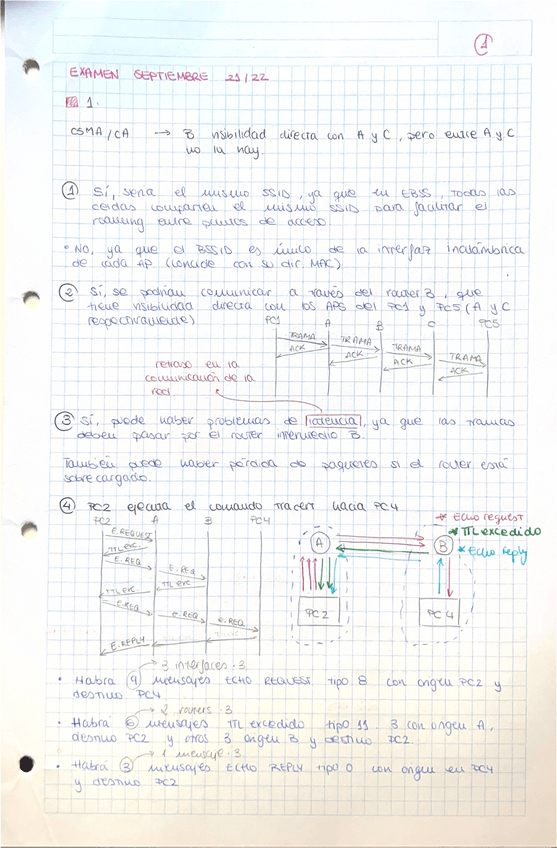 1
EXAMEN SEPTIEMBRE 21/22
1.
CSMA/CA → B visibilidad directa con A y C, pero entre A y C
no la hay.
① Sí, sería el mismo SSID, ya que en EBSS, todas las
celdas comparten el mismo SSID para facilitar el
roaming entre puntos de acceso.
• NO, ya que el BSSID es único de la interfaz inalámbrica
de cada AP (coincide con su dir. MAC)
② Sí, se podrían comunicar a través del router B, que
tiene visibilidad directa con los APs del PC1 y PC5 (A y C
respectivamente)
PC1 A B C PC5
TRAMA TRAMA TRAMA TRAMA
ACK ACK ACK ACK
retraso en la
comunicación de la
red
③ Sí, puede haber problemas de latencia, ya que las tramas
deben pasar por el router intermedio B.
También puede haber pérdida de paquetes si el router está
sobrecargado.
④ PC2 ejecuta el comando tracert hacia PC4
PC2 A B PC4
E.REQUEST
TTL exc.
E.REQ E.REQ
TTL exc. TTL exc
E.REQ E.REQ E.REQ
E.REPLY
* Echo request
* TTL excedido
* Echo reply
A B
PC2 PC4
→ 3 interfaces · 3
• Habrá 9 mensajes ECHO REQUEST tipo 8 con origen PC2 y
destino PC4
→ 2 routers · 3
• Habrá 6 mensajes TTL excedido tipo 11. 3 con origen A,
destino PC2 y otros 3 origen B y destino PC2.
→ 1 mensaje · 3
• Habrá 3 mensajes ECHO REPLY tipo 0 con origen en PC4
y destino PC2